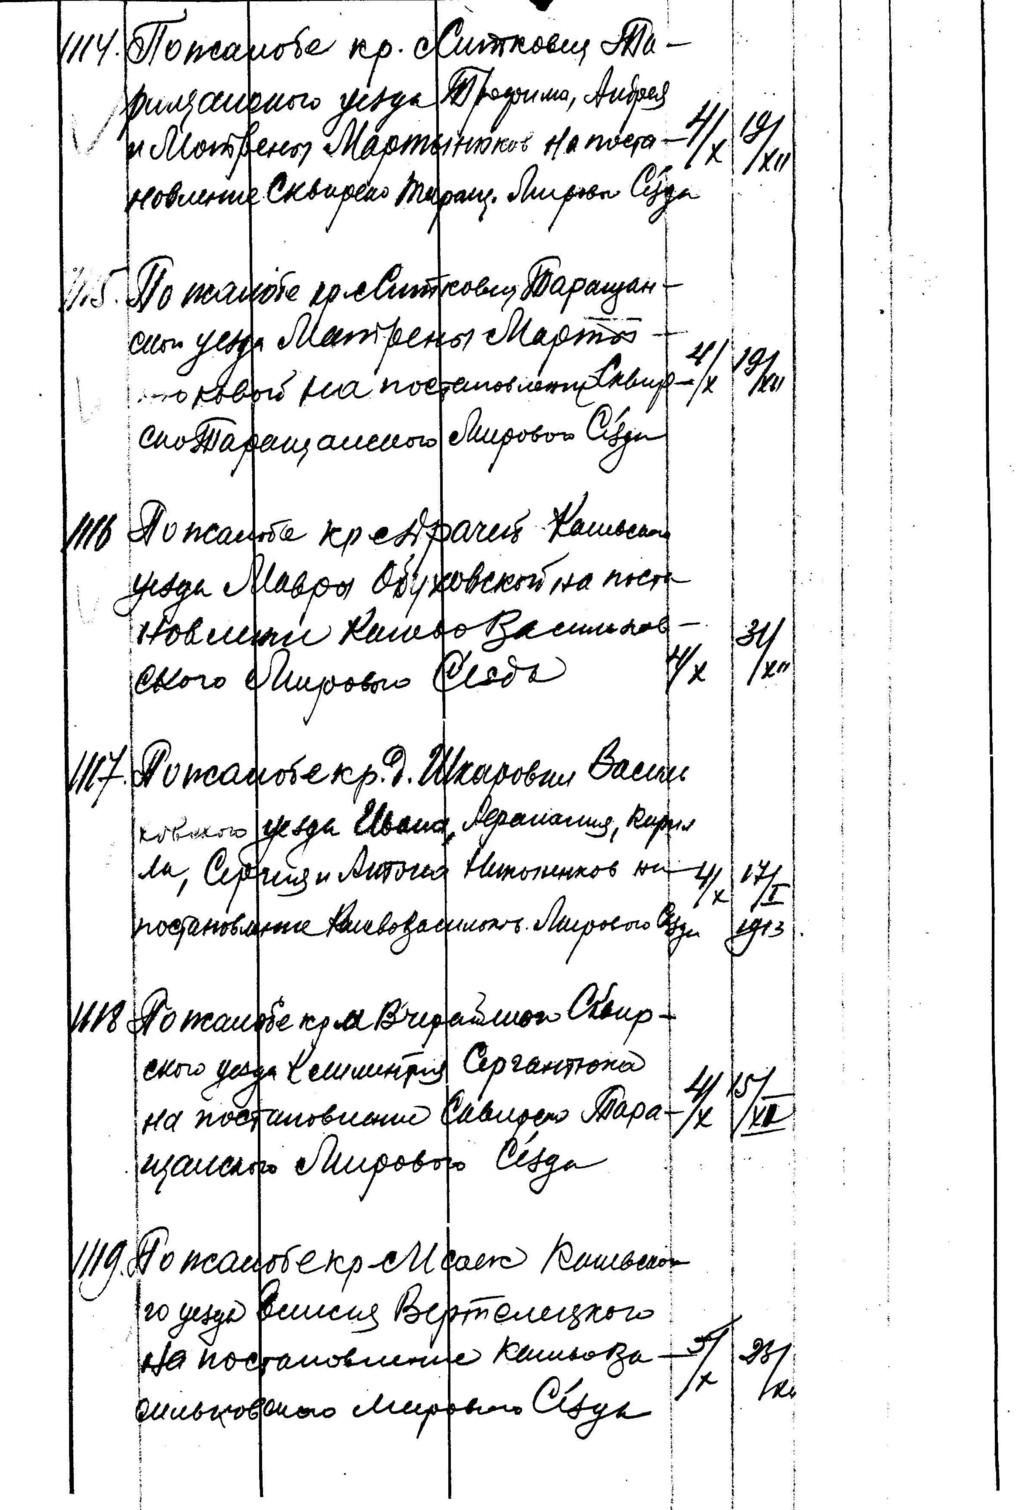 1114. По жалобе кр. с Ситковец Та-
ращанского уезда Трофима, Андрея
и Матрены Мартынюков на поста- 4/X 19/XII
новление Сквирско Таращ. Мирово Съезда
1115. По жалобе кр. с Ситковец Таращан-
ского уезда Матрены Марты-
нюковой на постановление Сквир- 4/X 19/XII
ско Таращанского Мирового Съезда
1116 По жалобе кр с Драчей Киевского
уезда Мавры Обуховской на поста
новление Киево Васильков-
ского Мирового Съезда 4/X 31/XII
1117. По жалобе кр. д. Шкаровки Васил
ковского уезда Ивана, Афанасия, Кирил
ла, Сергия и Антона на 4/X 17/I
постановление Киево Васильк. Мирового Съезда 1913.
1118 По жалобе кр с Вчерайшой Сквир-
ского уезда Климентия Сергантюка
на постановление Сквирско Тара- 4/X 15/XII
щанского Мирового Съезда
1119. По жалобе кр с Исаек Киевско
го уезда Вертелецкого
на постановление Киево Ва- 5/X 23/XI
сильковского Мирового Съезда